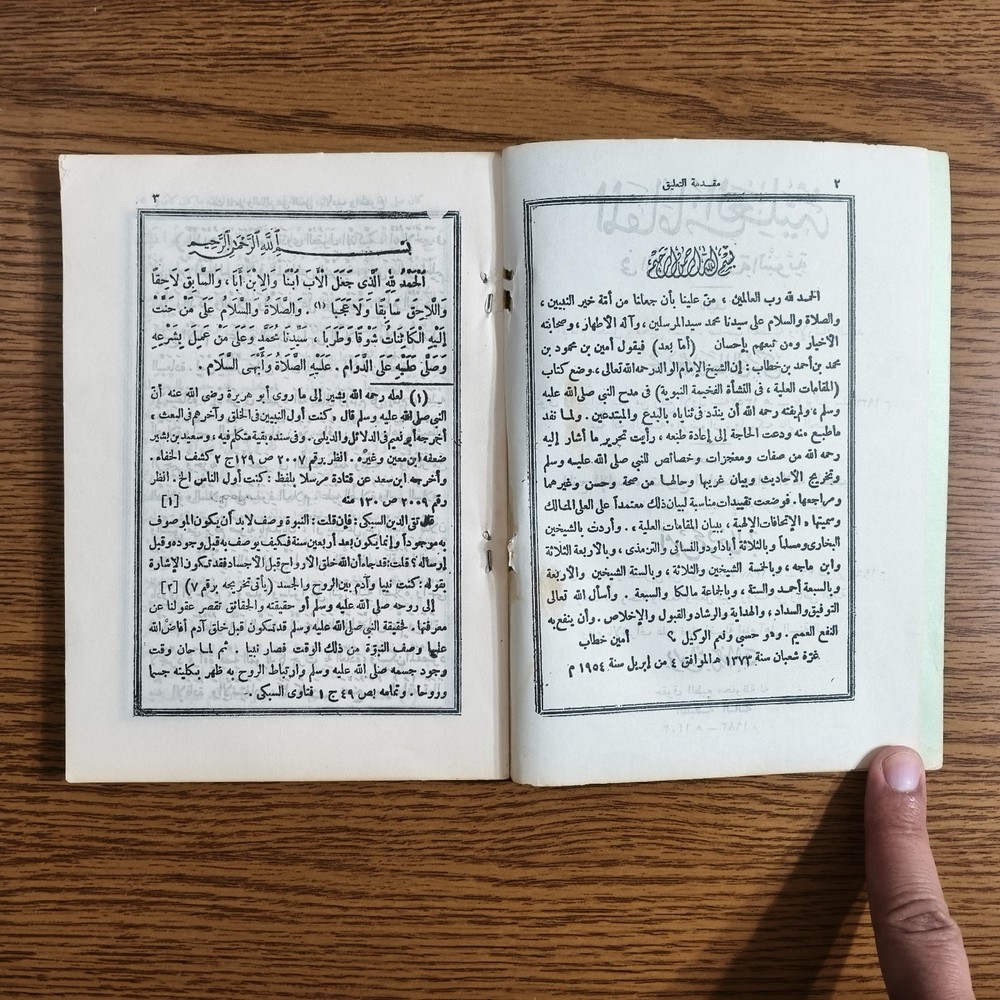 ٢
مقدمة التعليق
بسم الله الرحمن الرحيم
الحمد لله رب العالمين ، منّ علينا بأن جعلنا من أمة خير النبيين ،
والصلاة والسلام على سيدنا محمد سيد المرسلين ، وآله الأطهار ، وصحابته
الأخيار ومن تبعهم بإحسان (أما بعد) فيقول أمين بن محمود بن
محمد بن أحمد بن خطاب : إن الشيخ الإمام الوالد رحمه الله تعالى ، وضع كتاب
(المقامات العلية ، فى النشأة الفخيمة النبوية) فى مدح النبى صلى الله عليه
وسلم ، ولم يفته رحمه الله أن يندّد فى ثناياه بالبدع والمبتدعين . ولما نفد
ماطبع منه ودعت الحاجة إلى إعادة طبعه ، رأيت تحرير ما أشار إليه
رحمه الله من صفات ومعجزات وخصائص للنبى صلى الله عليه وسلم
وتخريج الأحاديث وبيان غريبها وحالها من صحة وحسن وغيرهما
ومراجعها . فوضعت تقييدات مناسبة لبيان ذلك معتمداً على العلى المالك
وسميتها « الإتحافات الإلهية ، ببيان المقامات العلية » . وأردت بالشيخين
البخارى ومسلماً وبالثلاثة أباداود والنسائى والترمذى ، وبالأربعة الثلاثة
وابن ماجه ، وبالخمسة الشيخين والثلاثة ، وبالستة الشيخين والأربعة
وبالسبعة أحمد والستة ، وبالجماعة مالكا والسبعة . وأسأل الله تعالى
التوفيق والسداد ، والهداية والرشاد والقبول والإخلاص . وأن ينفع به
النفع العميم . وهو حسبى ونعم الوكيل ؟ أمين خطاب
غرّة شعبان سنة ١٣٧٣ ه الموافق ٤ من إبريل سنة ١٩٥٤ م
٣
بسم الله الرحمن الرحيم
الْحَمْدُ لِلهِ الَّذِى جَعَلَ الْأَبَ اُبْنًا وَالِابْنَ أَبًا ، وَالسَّابِقَ لَاحِقًا
وَاللَّاحِقَ سَابِقًا وَلَا عَجَبَا (١) . وَالصَّلَاةُ وَالسَّلَامُ عَلَى مَنْ حَنَّتْ
إِلَيْهِ الْكَائِنَاتُ شَوْقًا وَطَرَبَا ، سَيِّدِنَا مُحَمَّدٍ وَعَلَى مَنْ عَمِلَ بِشَرْعِهِ
وَصَلَّى عَلَيْهِ عَلَى الدَّوَامِ . عَلَيْهِ الصَّلَاةُ وَأَبْهَى السَّلَامِ .
(١) لعله رحمه الله يشير إلى ما روى أبو هريرة رضى الله عنه أن
النبى صلى الله عليه وسلم قال « كنت أول النبيين فى الخلق وآخرهم فى البعث ،
أخرجه أبو نعيم فى الدلائل والديلمى . وفى سنده بقية متكلم فيه ، وسعيد بن بشير
ضعفه ابن معين وغيره . انظر رقم ٢٠٠٧ ص ١٢٩ ج ٢ كشف الخفاء .
وأخرجه ابن سعد عن قتادة مرسلا بلفظ : كنت أول الناس الخ . انظر
رقم ٢٠٠٩ ص ١٣٠ منه [١]
قال تقى الدين السبكى : فإن قلت : النبوة وصف لابد أن يكون الموصوف
به موجوداً وإنما يكون بعد أربعين سنة فكيف يوصف به قبل وجوده وقبل
إرساله ؟ قلت : قد جاء أن الله خلق الأرواح قبل الأجساد فقد تكون الإشارة
بقوله : كنت نبيا وآدم بين الروح والجسد (يأتى تخريجه برقم ٧) [٢]
إلى روحه صلى الله عليه وسلم أو حقيقته والحقائق تقصر عقولنا عن
معرفتها . فحقيقة النبى صلى الله عليه وسلم قد تكون قبل خلق آدم أفاض الله
عليها وصف النبوّة من ذلك الوقت فصار نبيا . ثم لما حان وقت
وجود جسمه صلى الله عليه وسلم وارتباط الروح به ظهر بكليته جسما
وروحا . وتمامه بص ٤٩ ج ١ فتاوى السبكى .